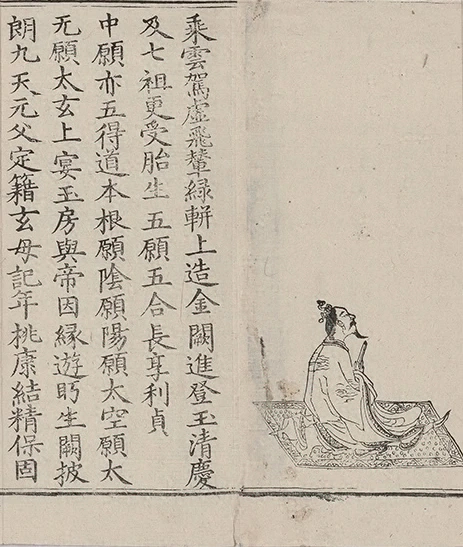 乘雲駕虛飛輦緑軿上造金闕進登玉清慶
及七祖更受胎生五願五合長享利貞
中願亦五得道本根願陰願陽願太空願太
无願太玄上宴玉房與帝因緣遊眄生闕披
朗九天元父定籍玄母記年桃康結精保固